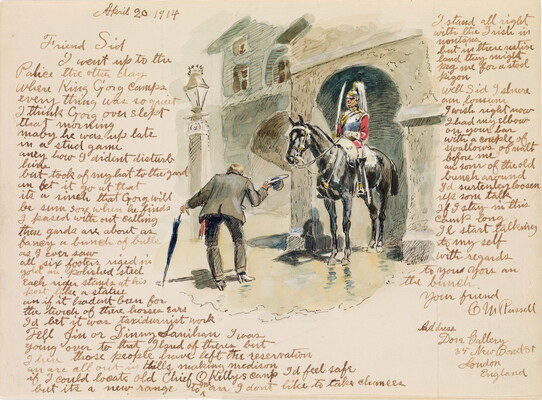 April 20 1914
Friend Sid
I went up to the
Palice the other day
where King Gorg Camps
every thing was so quiet
I think Gorg over slept
that morning
maby he was up late
in a stud game
aney how I dident disturb
him
but took of my hat to the gard
an let it go at that
its a sinch that Gorg will
be sore when he finds
I passed with out calling
these gards are about as
handy a bunch of bulls
as I ever saw
all six footers riged in
gold an polished steel
Each rider stands at his
post like a statue
an if it hadent been for
the twich of there horses ears
I'd bet it was taxidermist work
Tell Jim or Dinny Lanihan I was
going over to that Iland of theirs but
I hear those people have left the reservation
an are all out in hills making medison
if I could locate old Chief O Kellys camp I'd feel safe
but its a new range for me an I don't like to take chances
I stand all right
with the Irish in
montana
but in there native
land they might
tag me for a stool
pigon
Well Sid I shure
am lonsum
I wish right now
I had my elbow
on your bar
with a couple of
swallows of milk
before me
an som of the old
bunch around
I'd surtenly loosen
up som talk
If I stay in this
Camp long
I'l start talking
to my self
with regards
to you an
the bunch
Your friend
C M Russell
Address
Dore Gallery
35 New Bond St
London
England